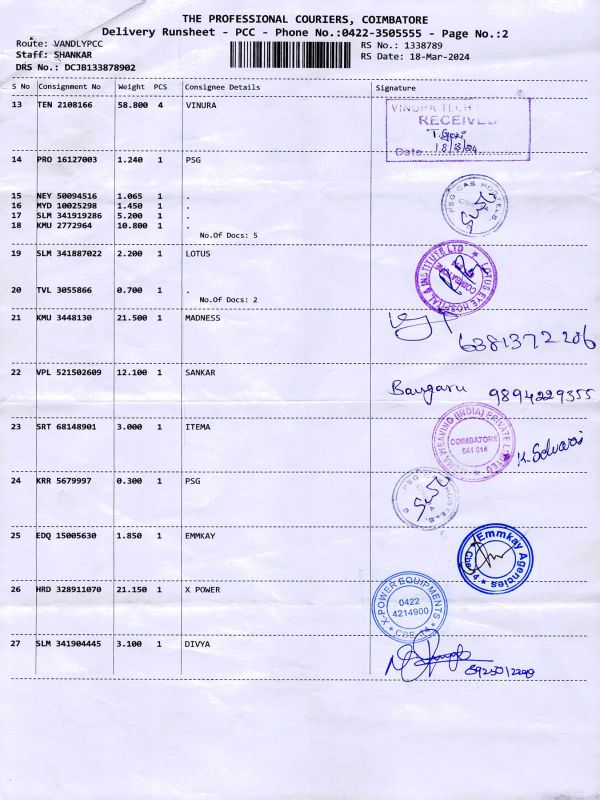 THE PROFESSIONAL COURIERS, COIMBATORE
Delivery Runsheet - PCC - Phone No.:0422-3505555 - Page No.:2
Route: VANDLYPCC
Staff: SHANKAR
DRS No.: DCJB133878902
RS No.: 1338789
RS Date: 18-Mar-2024
S No Consignment No Weight PCS Consignee Details Signature
13 TEN 2108166 58.800 4 VINURA
RECEIVED
Date 18/3/24
14 PRO 16127003 1.240 1 PSG
15 NEY 50094516 1.065 1 .
16 MYD 10025298 1.450 1 .
17 SLM 341919286 5.200 1 .
18 KMU 2772964 10.800 1 .
No.Of Docs: 5
19 SLM 341887022 2.200 1 LOTUS
LOTUS EYE HOSPITAL & INSTITUTE LTD
20 TVL 3055866 0.700 1 .
No.Of Docs: 2
21 KMU 3448130 21.500 1 MADNESS
6381372206
22 VPL 521502609 12.100 1 SANKAR
Bangaru 9894229355
23 SRT 68148901 3.000 1 ITEMA
WEAVING (INDIA) PRIVATE LIMITED
COIMBATORE
641 016
K. Selvaraj
24 KRR 5679997 0.300 1 PSG
PSG
25 EDQ 15005630 1.850 1 EMMKAY
Emmkay Agencies
26 HRD 328911070 21.150 1 X POWER
X-POWER EQUIPMENTS
0422
4214900
CBE-14
27 SLM 341904445 3.100 1 DIVYA